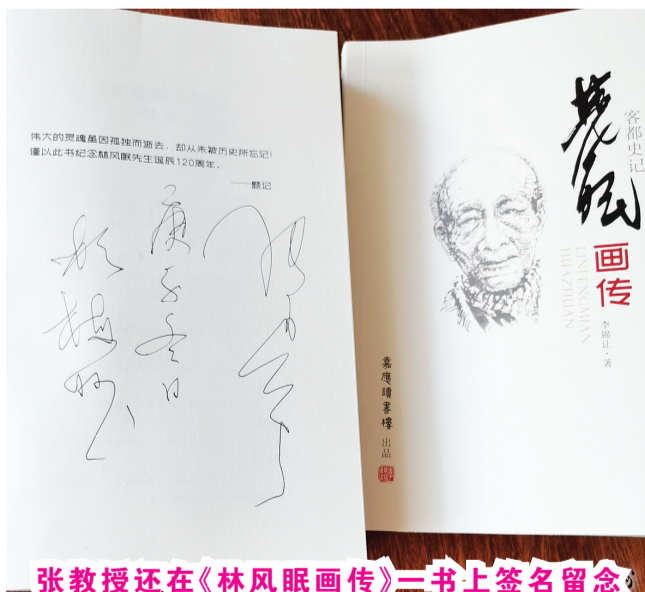 伟大的灵魂虽因孤独而逝去，却从未被历史所忘记！
谨以此书纪念林风眠先生诞辰120周年。
——题记
庚子冬日
於梅州
客都史记
画传
LINFENGMIAN
HUAZHUAN
李锦让·著
嘉應讀書樓 出品
张教授还在《林风眠画传》一书上签名留念